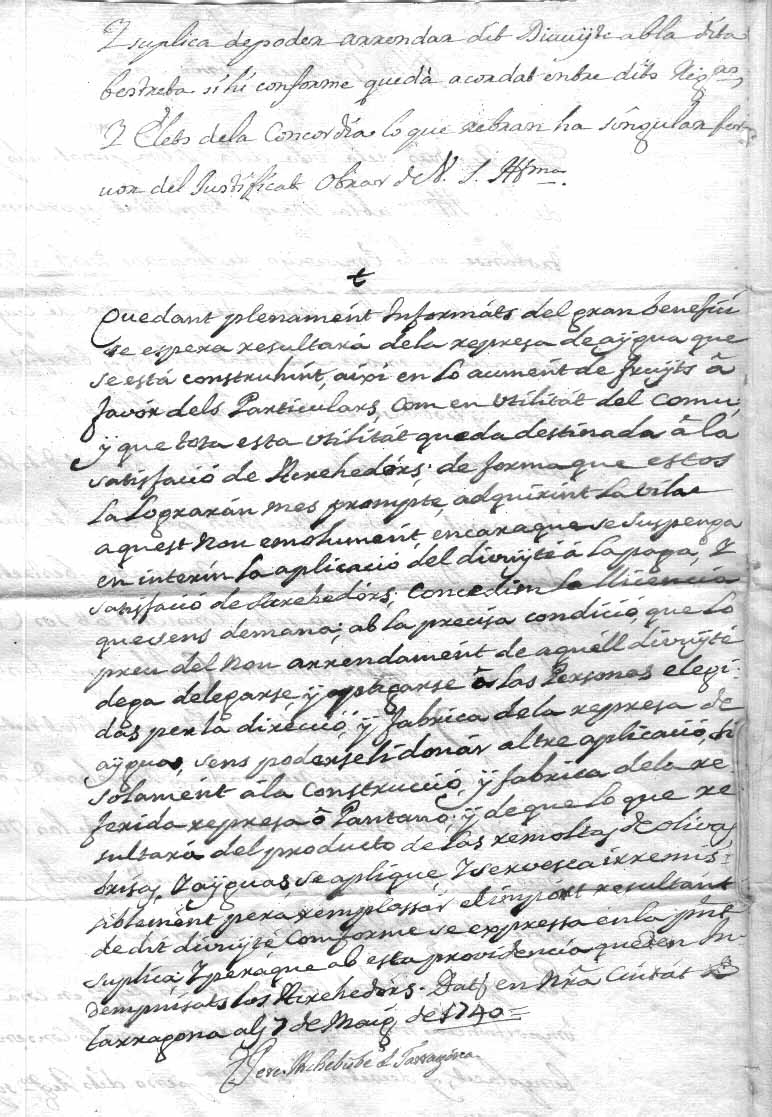 Y suplica de poder arrendar dit Divuyte ab la dita
bestreta si hi conforme quedà acordat entre dits Regrs,
Y Elets de la Concordia lo que rebran ha singular fer-
vor del Justificat Obrar de V. S. Illma.
t
Quedant plenament Informáts del gran benefici
se espera resultará dela represa de aÿgua que
se está construhint, aixi en lo aument de fruÿts â
favór dels Particulars, Com en Utilitát del Comu,
ÿ que tota esta utilitát queda destinada â la
satisfació de Acrehedórs; de forma que estos
La Lograrán mes prompte, adquirint La Vila
aquest Nou emolument, encaraque se suspenga
en interin La aplicació del divuÿté á La paga, Y
satisfació de Acrehedórs; Concedim La llicencia
que sens demana; ab La precisa condició, que Lo
preu del Nou arrendament de aquéll divuÿté
dega delegarse, ÿ aplicarse â las Personas elegi-
das per la direcció, ÿ fabrica dela represa de
aÿgua, sens poderseli donár altre aplicació, Si
Solament á la Construcció, ÿ fabrica dela re-
ferida represa ô Pantano; ÿ de que Lo que re
sultará del producto de Las remoltas de olivas
brisas, Y aÿguas, se aplique Y servesca irremis-
siblemént pera remplassár el import resultant
de dit divuÿté Comforme se expressa en la pñt
suplica, Y peraque ab esta providencia queden In-
dempnisats los Acrehedórs. Datt en Nrã Ciutát de
Tarragona als 7 de Maig de 1740=
Pere Archebisbe de Tarragona